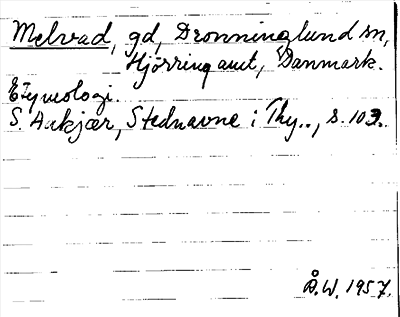 Melvad, gd, Dronninglund sn,
Hjørring amt, Danmark.
Etymologi.
S. Aakjær, Stednavne i Thy.., s. 103.
Å.W. 1957.